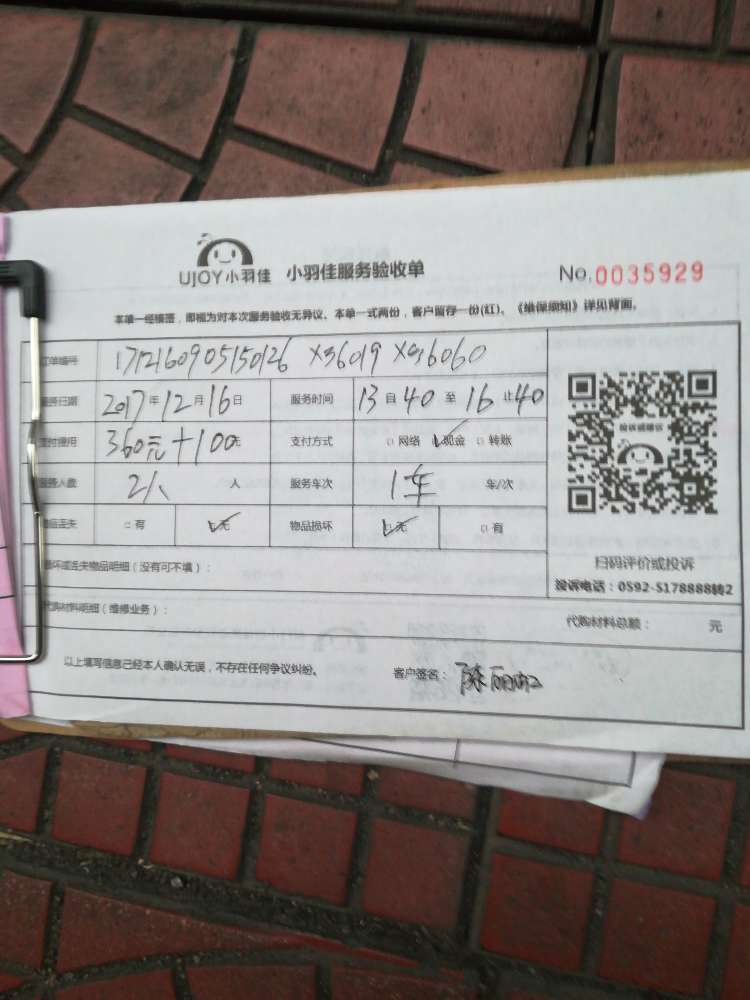 UJOY小羽佳 小羽佳服务验收单 No.0035929
本单一经签署，即视为对本次服务验收无异议。本单一式两份，客户留存一份(红)。《维保须知》详见背面。
订单编号 1712160905150126 X36019 X36060
服务日期 2017年12月16日 服务时间 13自40至16止40
支付费用 360元+100元 支付方式 □网络 ☑现金 □转账
服务人数 2人 人 服务车次 1车 车/次
物品丢失 □有 ☑无 物品损坏 ☑无 □有
投诉或建议
扫码评价或投诉
投诉电话：0592-5178888转2
损坏或丢失物品明细（没有可不填）：
代购材料明细（维修业务）： 代购材料总额： 元
以上填写信息已经本人确认无误，不存在任何争议纠纷。 客户签名：陈丽